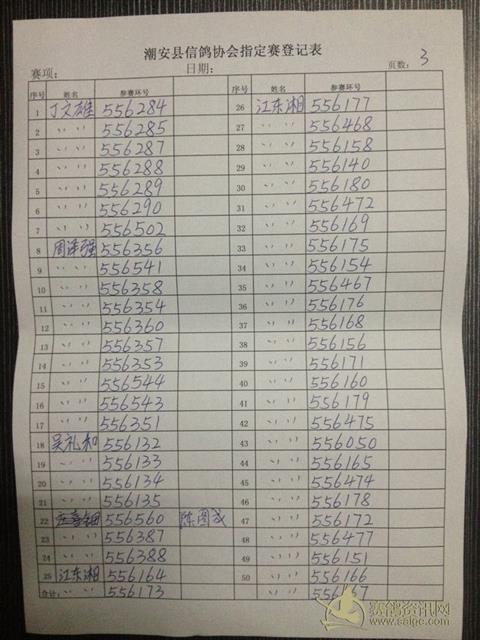 潮安县信鸽协会指定赛登记表
赛项: 日期: 页数: 3
序号 姓名 参赛环号
1 丁文雄 556284
2 〃 〃 556285
3 〃 〃 556287
4 〃 〃 556288
5 〃 〃 556289
6 〃 〃 556290
7 〃 〃 556502
8 周泽强 556356
9 〃 〃 556541
10 〃 〃 556358
11 〃 〃 556354
12 〃 〃 556360
13 〃 〃 556357
14 〃 〃 556353
15 〃 〃 556544
16 〃 〃 556543
17 〃 〃 556351
18 吴礼和 556132
19 〃 〃 556133
20 〃 〃 556134
21 〃 〃 556135
22 556560 陈图成
23 〃 〃 556387
24 〃 〃 556388
25 江东湘 556164
合计: 〃 〃 556173
序号 姓名 参赛环号
26 江东湘 556177
27 〃 〃 556468
28 〃 〃 556158
29 〃 〃 556140
30 〃 〃 556180
31 〃 〃 556472
32 〃 〃 556169
33 〃 〃 556175
34 〃 〃 556154
35 〃 〃 556467
36 〃 〃 556176
37 〃 〃 556168
38 〃 〃 556156
39 〃 〃 556171
40 〃 〃 556160
41 〃 〃 556179
42 〃 〃 556475
43 〃 〃 556050
44 〃 〃 556165
45 〃 〃 556474
46 〃 〃 556178
47 〃 〃 556172
48 〃 〃 556477
49 〃 〃 556151
50 〃 〃 556166
赛鸽资讯网
www.saige.com